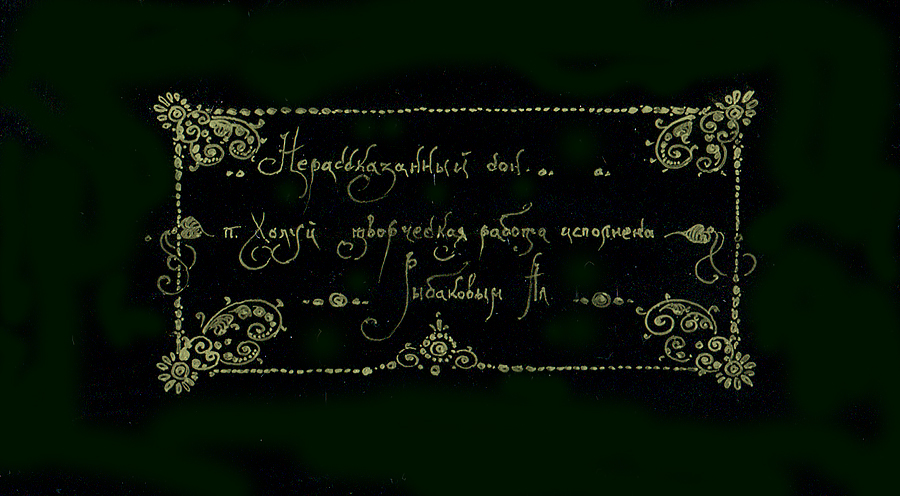 Нерассказанный сон...
п. Холуй творческая работа исполнена
Рыбаковым Ал